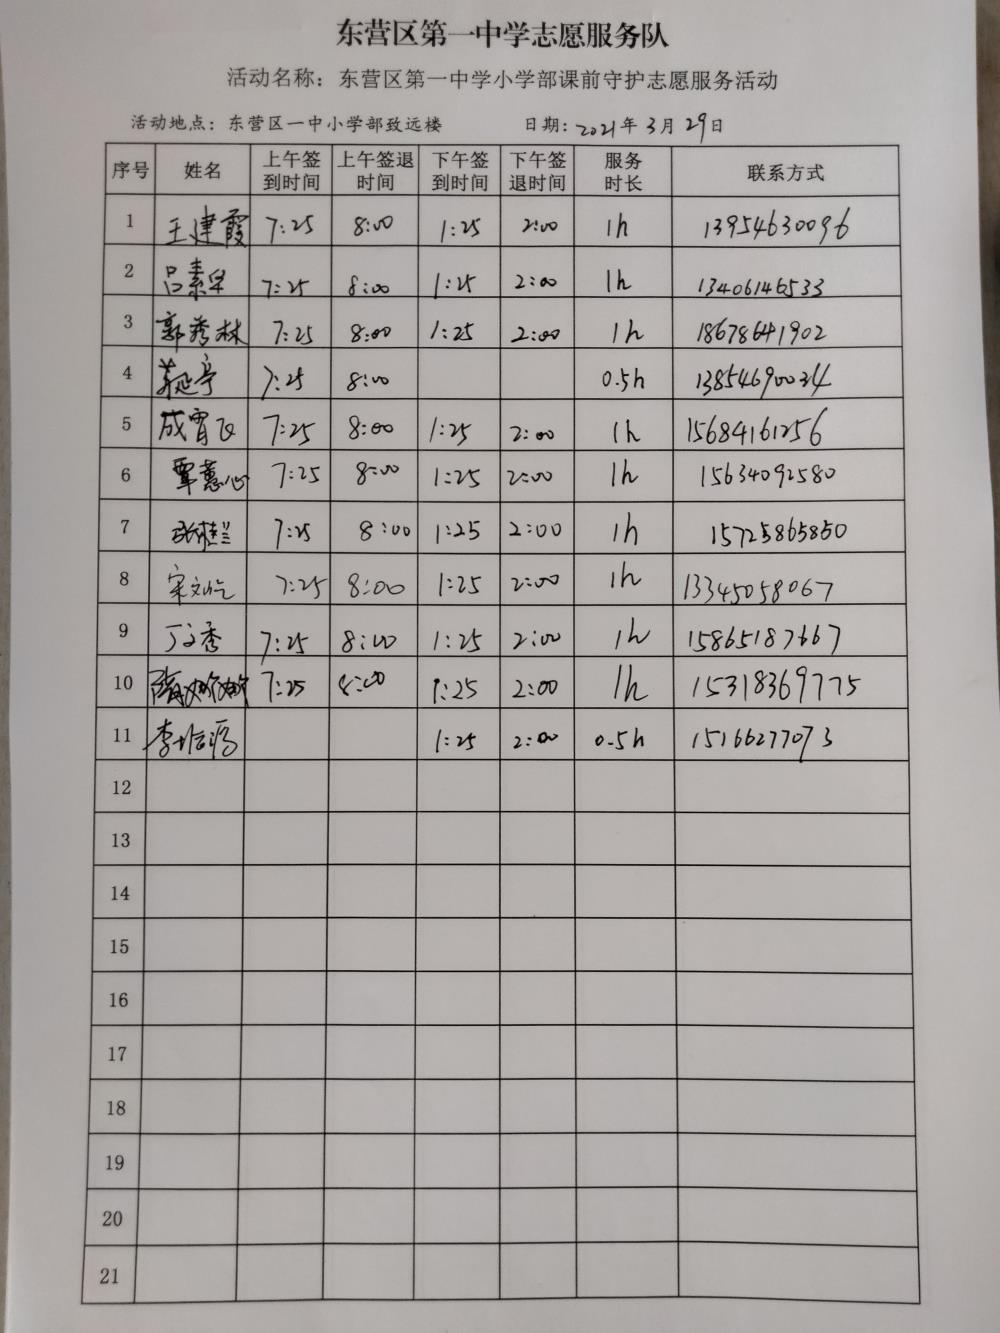 东营区第一中学志愿服务队
活动名称：东营区第一中学小学部课前守护志愿服务活动
活动地点：东营区一中小学部致远楼 日期：2021年3月29日
序号 姓名 上午签到时间 上午签退时间 下午签到时间 下午签退时间 服务时长 联系方式
1 王建霞 7:25 8:00 1:25 2:00 1h 13954630096
2 吕素华 7:25 8:00 1:25 2:00 1h 13406146533
3 郭秀林 7:25 8:00 1:25 2:00 1h 18678641902
4 7:25 8:00 0.5h 13854690034
5 成霄飞 7:25 8:00 1:25 2:00 1h 15684161256
6 覃蕙心 7:25 8:00 1:25 2:00 1h 15634092580
7 7:25 8:00 1:25 2:00 1h 15725865850
8 7:25 8:00 1:25 2:00 1h 13345058067
9 丁文秀 7:25 8:00 1:25 2:00 1h 15865187667
10 7:25 8:00 1:25 2:00 1h 15318369775
11 1:25 2:00 0.5h 15166277073
12
13
14
15
16
17
18
19
20
21